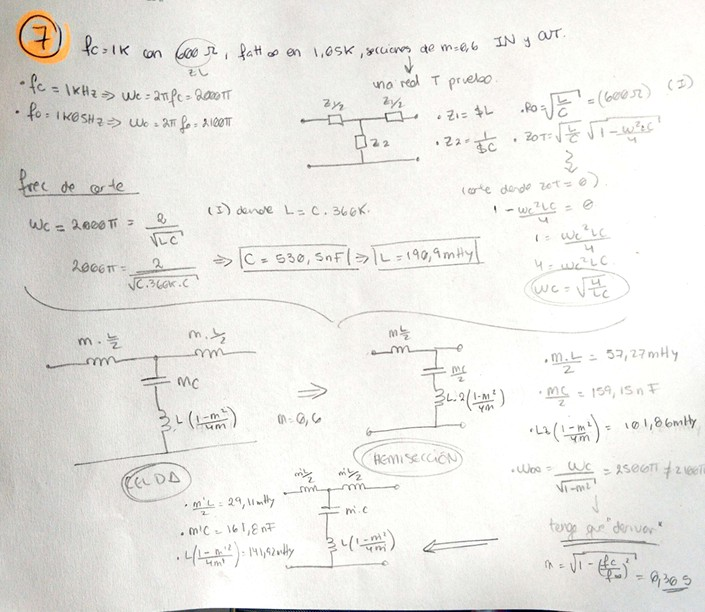 7 fc=1K con 600 Ω, fatt ∞ en 1,05K, secciones de m=0,6 IN y OUT.
ZL
una real T prueba.
• fc = 1KHz ⇒ Wc = 2πfc = 2000π
• f∞ = 1K05Hz ⇒ W∞ = 2π f∞ = 2100π
Z1/2 Z1/2
Z2
• Z1 = $L
• Z2 = 1/$C
• R0 = √(L/C) = (600Ω) (I)
• Z0T = √(L/C) √(1 - w²LC/4)
(corte donde Z0T = 0)
1 - wc²LC/4 = 0
1 = wc²LC/4
4 = wc²LC
wc = √(4/LC)
frec de corte
Wc = 2000π = 2/√LC
(I) donde L = C. 360K.
2000π = 2/√(C.360K.C) ⇒ C = 530,5nF ⇒ L = 190,9mHy
m. L/2 m. L/2
mC
L(1-m²/4m)
CELDA
⇒
m=0,6
m L/2
mC/2
L.2(1-m²/4m)
HEMISECCIÓN
• m.L/2 = 57,27mHy
• mC/2 = 159,15nF
• L2(1-m²/4m) = 101,86mHy
• W∞ = Wc/√(1-m²) = 2500π ≠ 2100π
tengo que "derivar"
m = √(1-(fc/f∞)²) = 0,305
m'L/2 m'L/2
m'.C
L(1-m'²/4m')
• m'L/2 = 29,11mHy
• m'C = 161,8nF
• L(1-m'²/4m') = 141,92mHy